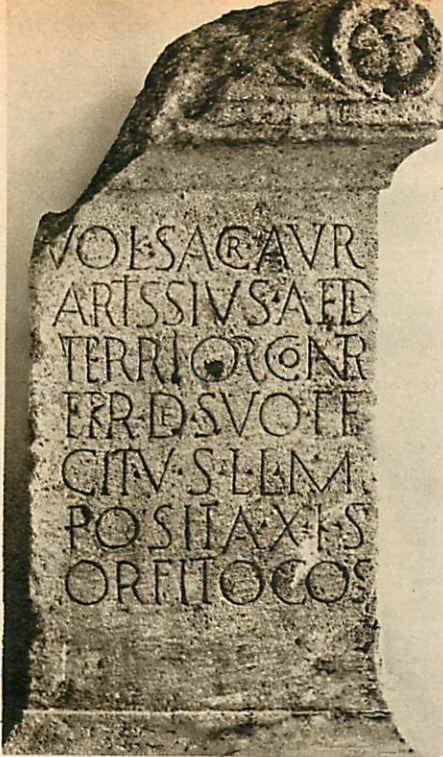 VOL·SACR·AVR
ARTISSIVS·AEDIL
TERRITOR·CONTR
ET·K·R·DE·SVO FE
CIT V·S·L·L·M
POSIT·A·X·K·S
ORFITO COS